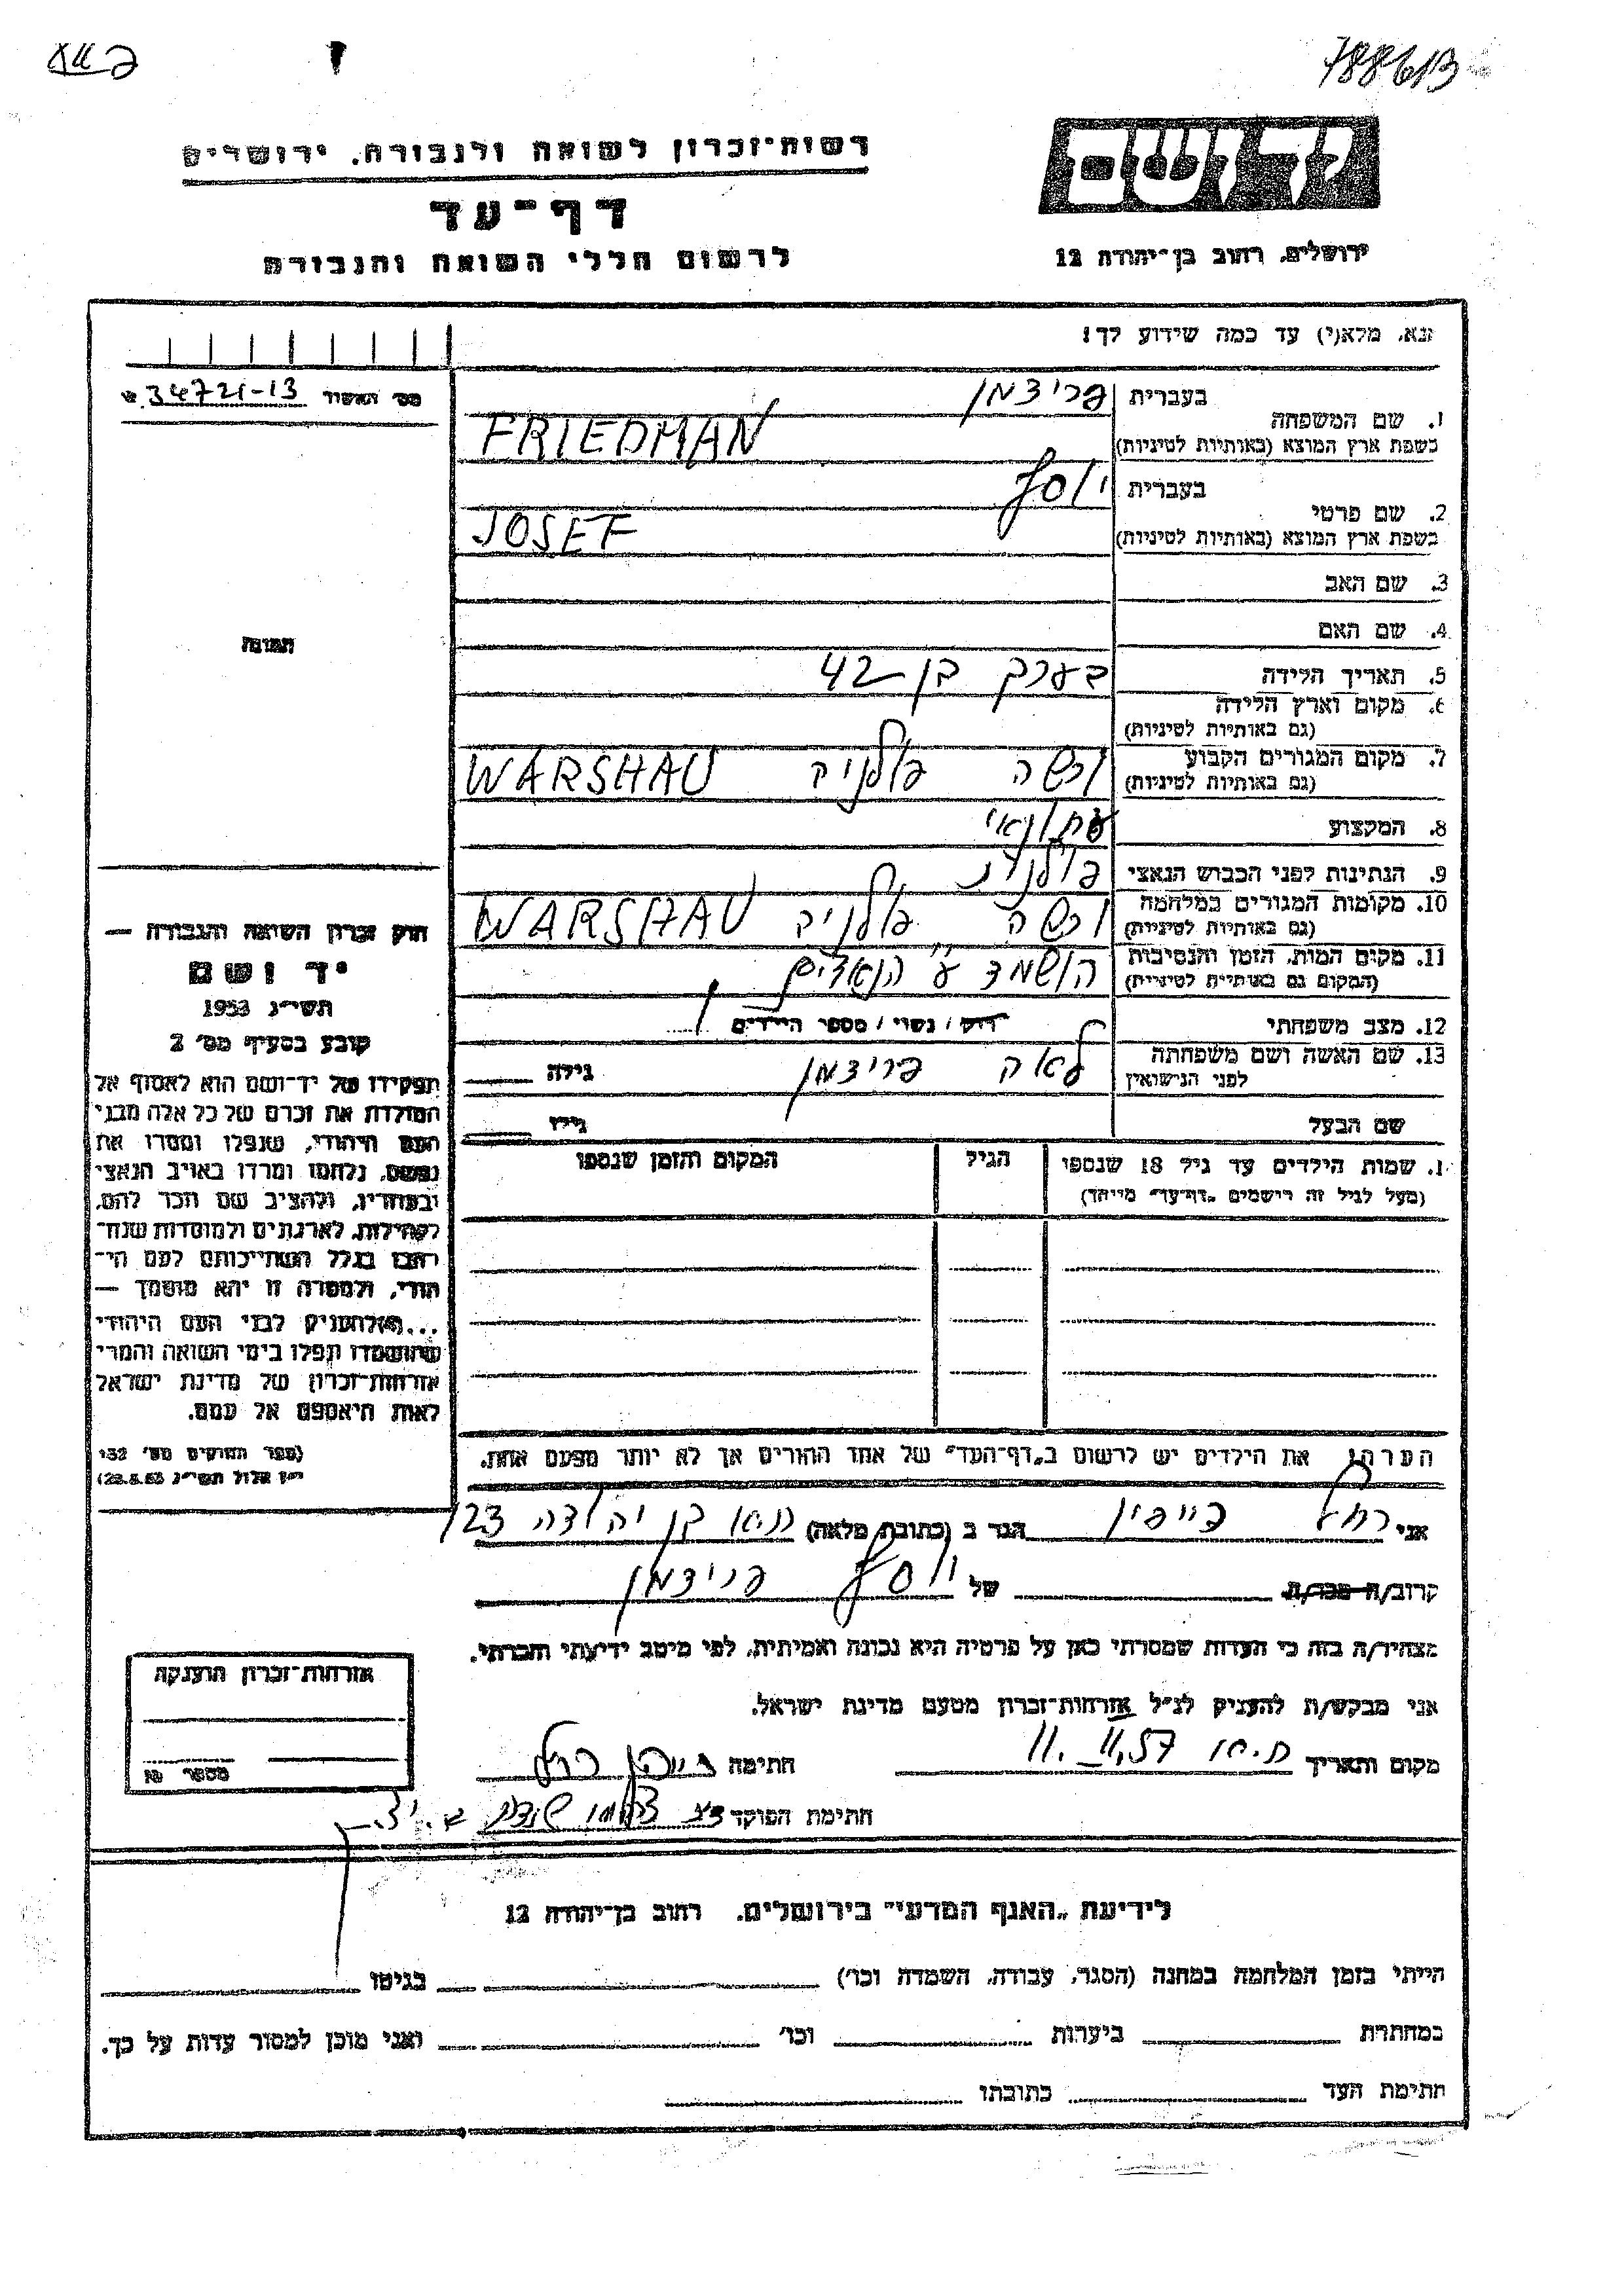 78861B
יד ושם
ירושלים, רחוב בן־יהודה 12
רשות־זכרון לשואה ולגבורה, ירושלים
דף־עד
לרשום חללי השואה והגבורה
נא, מלא(י) עד כמה שידוע לך!
מס' האשור 34721-13
בעברית פרידמן
1. שם המשפחה
בשפת ארץ המוצא (באותיות לטיניות) FRIEDMAN
בעברית יוסף
2. שם פרטי
בשפת ארץ המוצא (באותיות לטיניות) JOSEF
3. שם האב
4. שם האם
5. תאריך הלידה בערך בן 42
6. מקום וארץ הלידה
(גם באותיות לטיניות)
7. מקום המגורים הקבוע ורשה פולניה WARSHAU
(גם באותיות לטיניות)
8. המקצוע עתונאי
9. הנתינות לפני הכבוש הנאצי פולנית
10. מקומות המגורים במלחמה ורשה פולניה WARSHAU
(גם באותיות לטיניות)
11. מקום המות, הזמן והנסיבות הושמד ע"י הנאצים
(המקום גם באותיות לטיניות)
12. מצב משפחתי רווק / נשוי / מספר הילדים
13. שם האשה ושם משפחתה לאה פרידמן גילה
לפני הנישואין
שם הבעל גילו
1. שמות הילדים עד גיל 18 שנספו הגיל המקום והזמן שנספו
(מעל לגיל זה רישמים „דף־עד" מייחד)
הערה: את הילדים יש לרשום ב„דף־העד" של אחד ההורים אך לא יותר מפעם אחת.
תמונה
חוק זכרון השואה והגבורה —
יד ושם
תשי"ג 1953
קובע בסעיף מס' 2
תפקידו של יד־ושם הוא לאסוף אל
המולדת את זכרם של כל אלה מבני
העם היהודי, שנפלו ומסרו את
נפשם, נלחמו ומרדו באויב הנאצי
ובעוזריו, ולהציב שם וזכר להם,
לקהילות, לארגונים ולמוסדות שנח־
רבו בגלל השתייכותם לעם הי־
הודי, ולמטרה זו יהא מוסמך —
...להעניק לבני העם היהודי
שהושמדו ונפלו בימי השואה והמרי
אזרחות־זכרון של מדינת ישראל
לאות היאספם אל עמם.
(ספר החוקים מס' 132
י"ז אלול תשי"ג 28.8.53)
אני רחל פיימן הגר ב (כתובת מלאה) ת"א בן יהודה 123
קרוב/ה מכר/ה של יוסף פרידמן
מצהיר/ה בזה כי העדות שמסרתי כאן על פרטיה היא נכונה ואמיתית, לפי מיטב ידיעתי והכרתי.
אני מבקש/ת להעניק לנ"ל אזרחות־זכרון מטעם מדינת ישראל.
מקום ותאריך 11.11.57 חתימה
חתימת הפוקד
אזרחות־זכרון הוענקה
מספר
לידיעת „האגף המדעי" בירושלים, רחוב בן־יהודה 12
הייתי בזמן המלחמה במחנה (הסגר, עבודה, השמדה וכו') בגיטו
במחתרת ביערות וכו' ואני מוכן למסור עדות על כך.
חתימת העד כתובתו